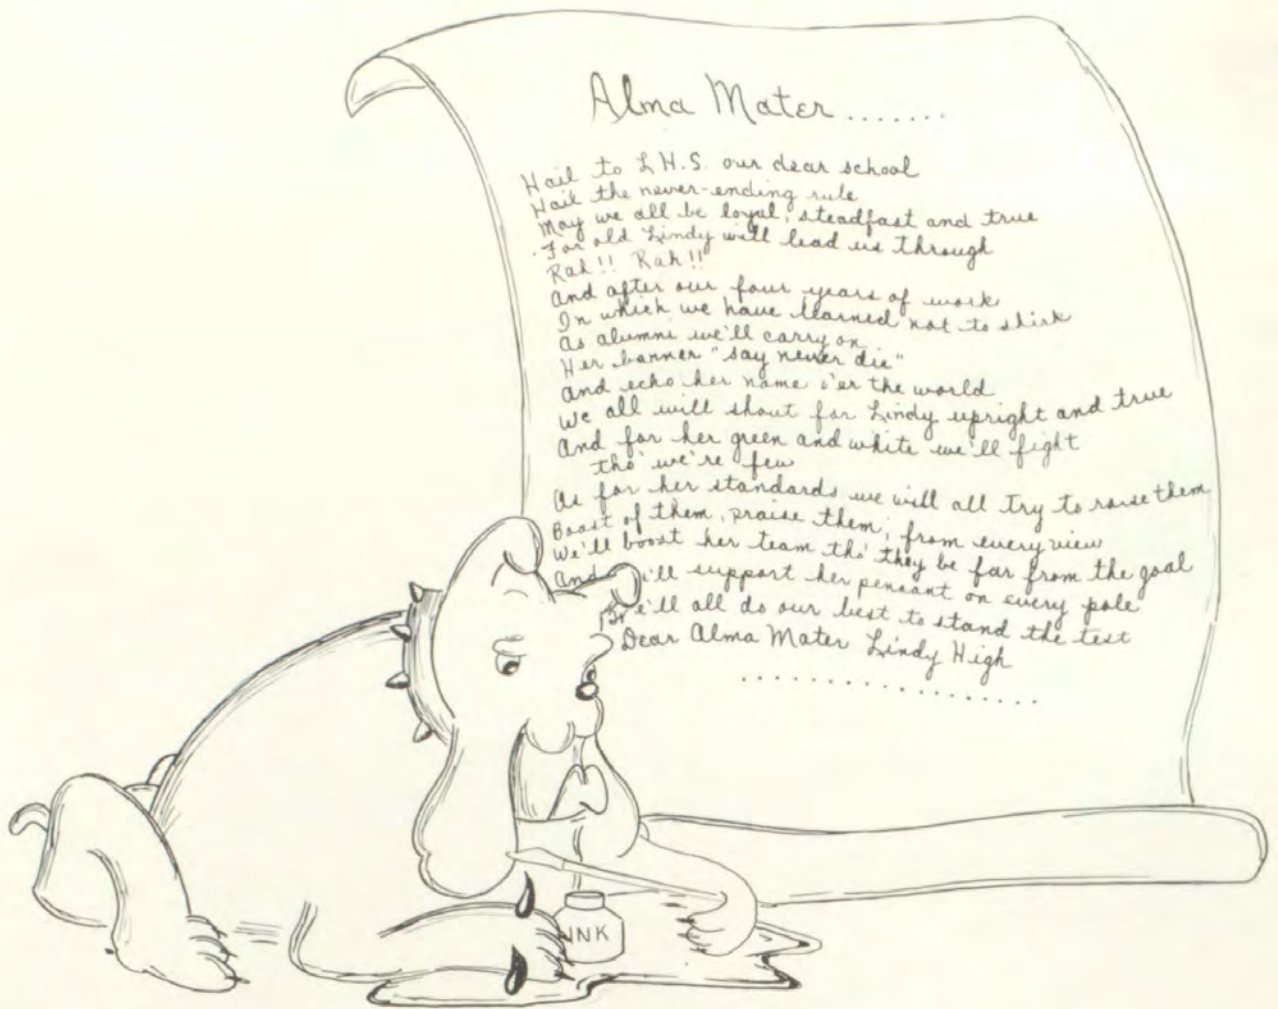 Alma Mater.......
Hail to L H.S. our dear school
Hail the never-ending rule
May we all be loyal, steadfast and true
For old Lindy will lead us through
Rah!! Rah!!
And after our four years of work
In which we have learned not to shirk
As alumni we'll carry on
Her banner "say never die"
And echo her name o'er the world
We all will shout for Lindy upright and true
And for her green and white we'll fight
tho' we're few
As for her standards we will all try to raise them
Boast of them, praise them, from every view
We'll boost her team tho' they be far from the goal
And 'll support her pennant on every pole
We'll all do our best to stand the test
Dear Alma Mater Lindy High
..................
INK